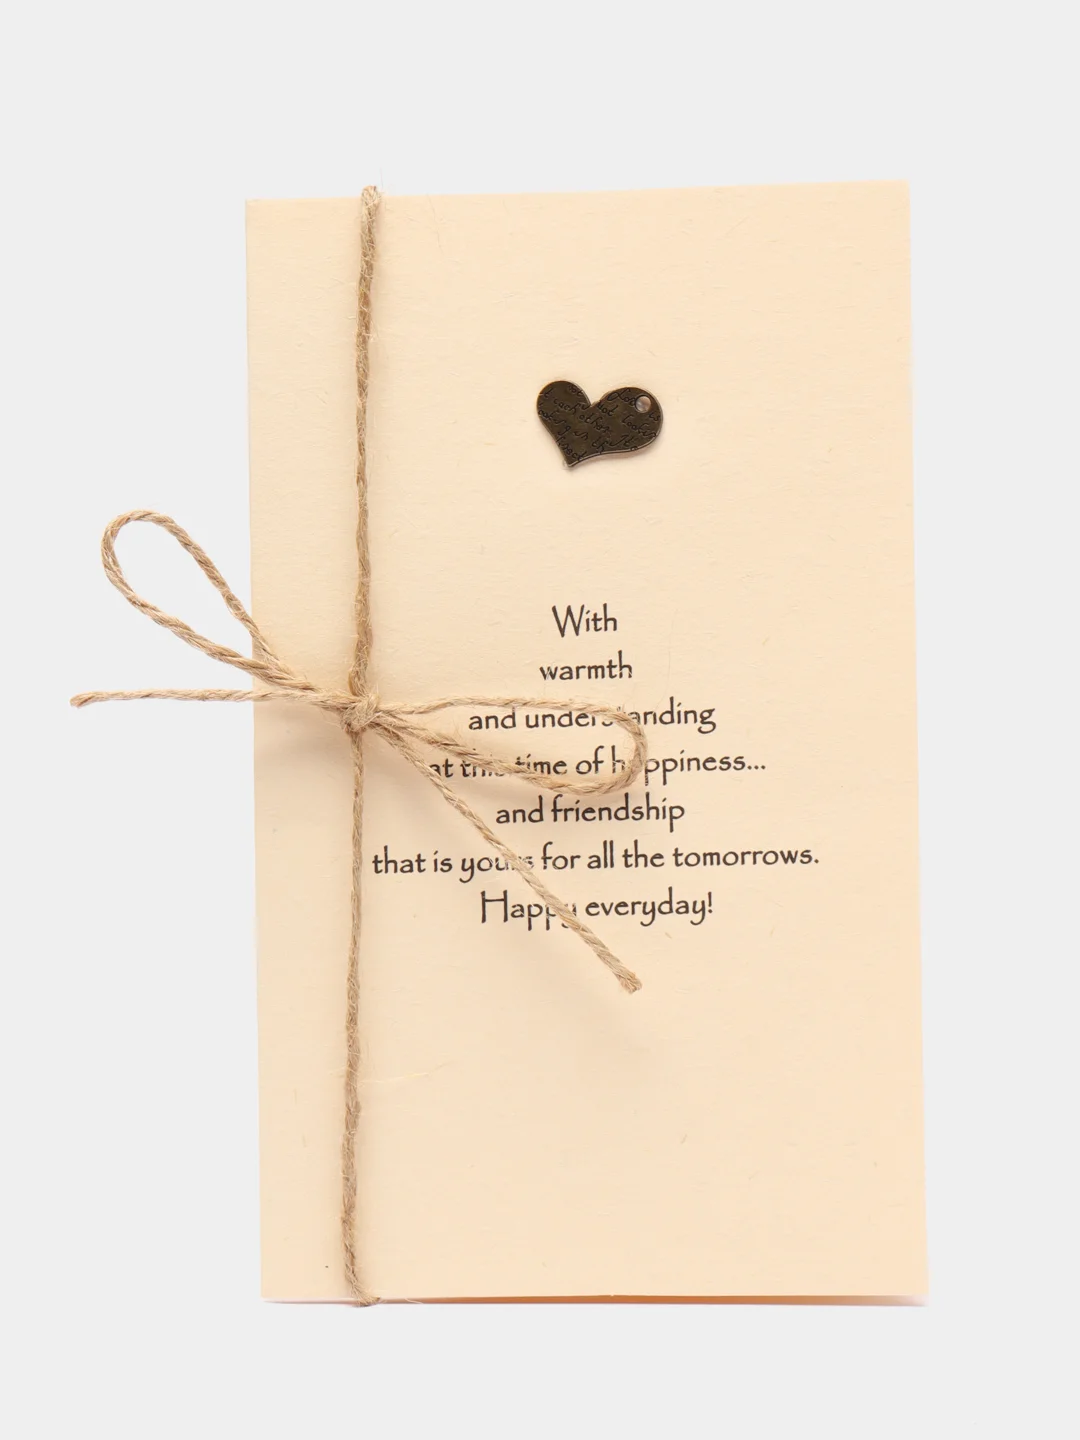 With
warmth
and understanding
at this time of happiness...
and friendship
that is yours for all the tomorrows.
Happy everyday!